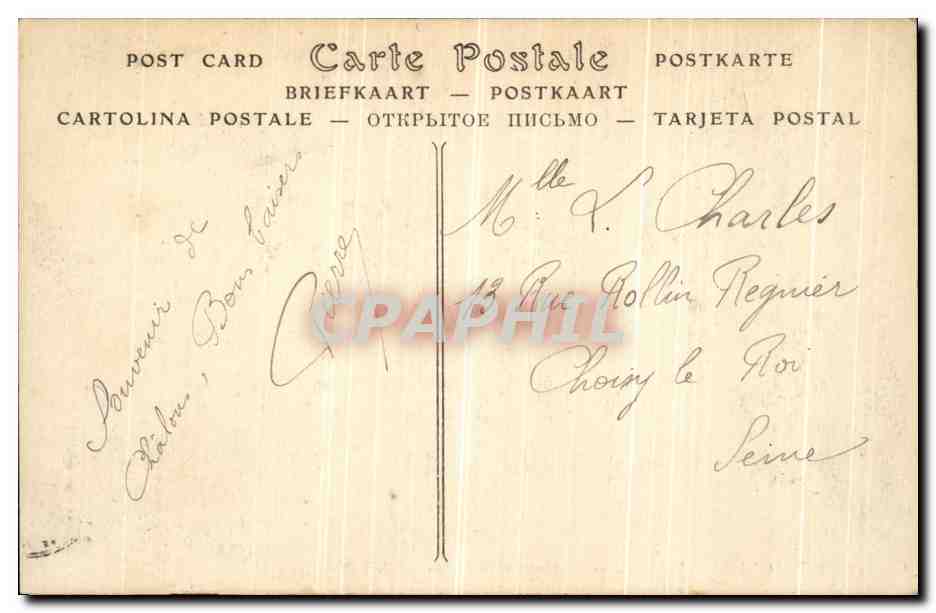 POST CARD Carte Postale POSTKARTE
BRIEFKAART — POSTKAART
CARTOLINA POSTALE — ОТКРЫТОЕ ПИСЬМО — TARJETA POSTAL
Souvenir de
Châlons, Bons baisers
Pierre
Mlle L. Charles
13 Rue Rollin Regnier
Choisy le Roi
Seine
CPAPHIL